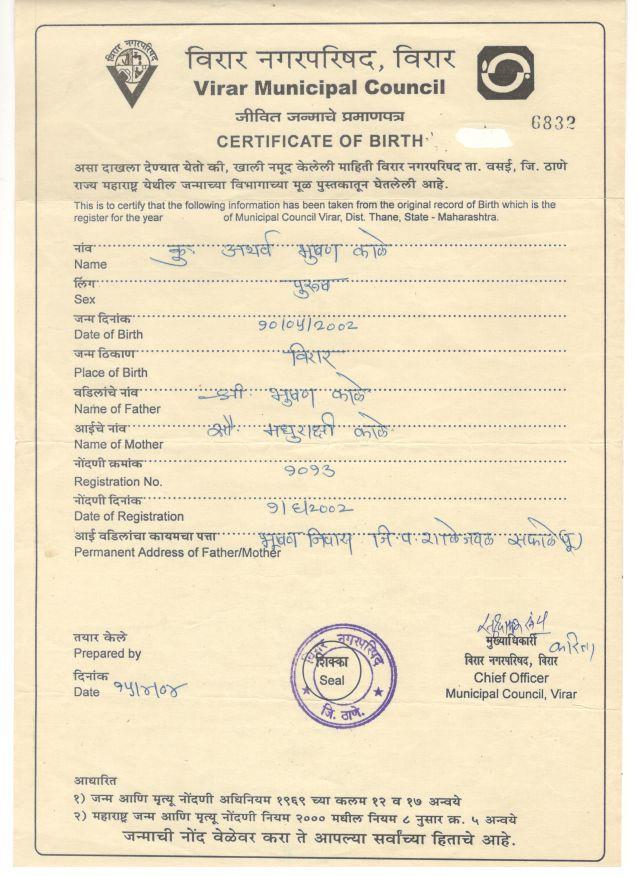 विरार नगरपरिषद
विरार नगरपरिषद, विरार
Virar Municipal Council
जीवित जन्माचे प्रमाणपत्र
CERTIFICATE OF BIRTH
6832
असा दाखला देण्यात येतो की, खाली नमूद केलेली माहिती विरार नगरपरिषद ता. वसई, जि. ठाणे
राज्य महाराष्ट्र येथील जन्माच्या विभागाच्या मूळ पुस्तकातून घेतलेली आहे.
This is to certify that the following information has been taken from the original record of Birth which is the
register for the year of Municipal Council Virar, Dist. Thane, State - Maharashtra.
नांव कु. अथर्व भुषण काळे
Name
लिंग पुरुष
Sex
जन्म दिनांक १०/०५/2002
Date of Birth
जन्म ठिकाण विरार
Place of Birth
वडिलांचे नांव श्री. भुषण काळे
Name of Father
आईचे नांव सौ. मधुराक्षी काळे
Name of Mother
नोंदणी क्रमांक १०१३
Registration No.
नोंदणी दिनांक १/६/2002
Date of Registration
आई वडिलांचा कायमचा पत्ता भूषण निवास जि.प.शाळेजवळ सफाळे (पू)
Permanent Address of Father/Mother
तयार केले
Prepared by
दिनांक
Date १५/४/०४
विरार नगरपरिषद
शिक्का
Seal
जि. ठाणे.
मुख्याधिकारी करिता
विरार नगरपरिषद, विरार
Chief Officer
Municipal Council, Virar
आधारित
१) जन्म आणि मृत्यू नोंदणी अधिनियम १९६९ च्या कलम १२ व १७ अन्वये
२) महाराष्ट्र जन्म आणि मृत्यू नोंदणी नियम २००० मधील नियम ८ नुसार क्र. ५ अन्वये
जन्माची नोंद वेळेवर करा ते आपल्या सर्वांच्या हिताचे आहे.